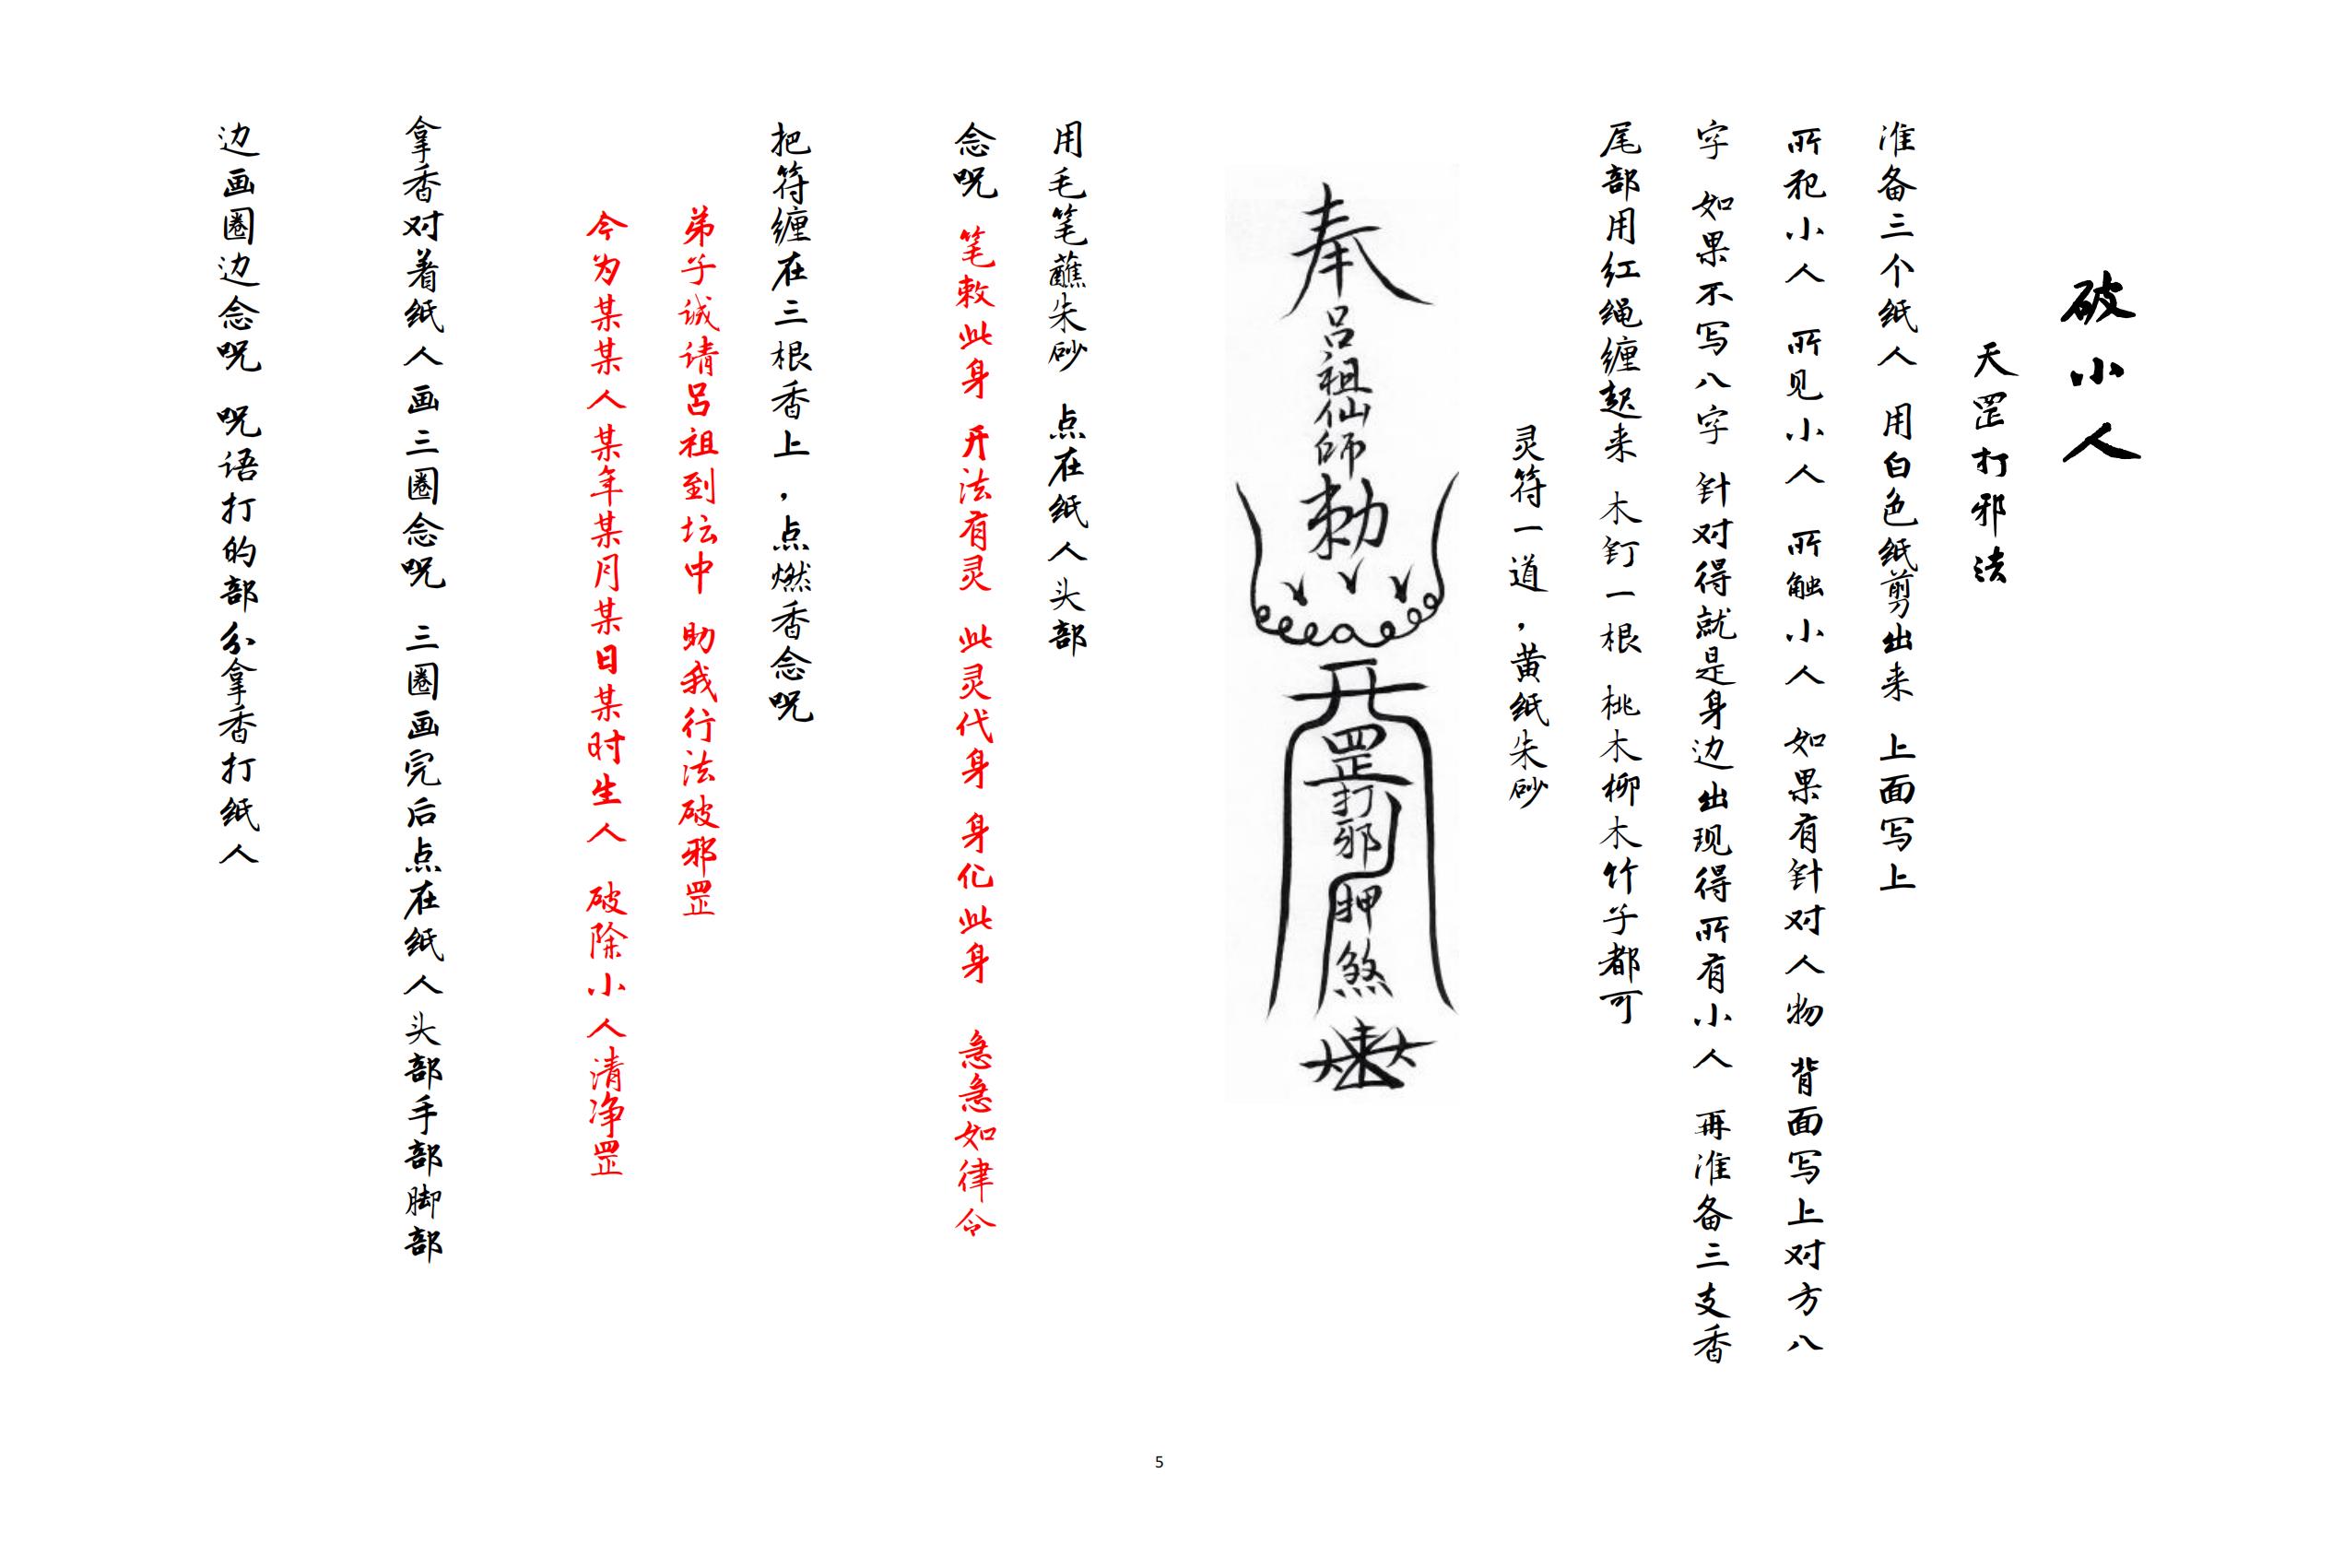 破小人
天罡打邪法
准备三个纸人 用白色纸剪出来 上面写上
所犯小人 所见小人 所触小人 如果有针对人物 背面写上对方八
字 如果不写八字 针对得就是身边出现得所有小人 再准备三支香
尾部用红绳缠起来 木钉一根 桃木柳木竹子都可
灵符一道，黄纸朱砂
奉
呂祖仙師
勅
开
罡打邪
押煞
用毛笔蘸朱砂 点在纸人头部
念咒 笔敕此身 开法有灵 此灵代身 身化此身 急急如律令
把符缠在三根香上，点燃香念咒
弟子诚请吕祖到坛中 助我行法破邪罡
今为某某人某年某月某日某时生人 破除小人清净罡
拿香对着纸人画三圈念咒 三圈画完后点在纸人头部手部脚部
边画圈边念咒 咒语打的部分拿香打纸人
5